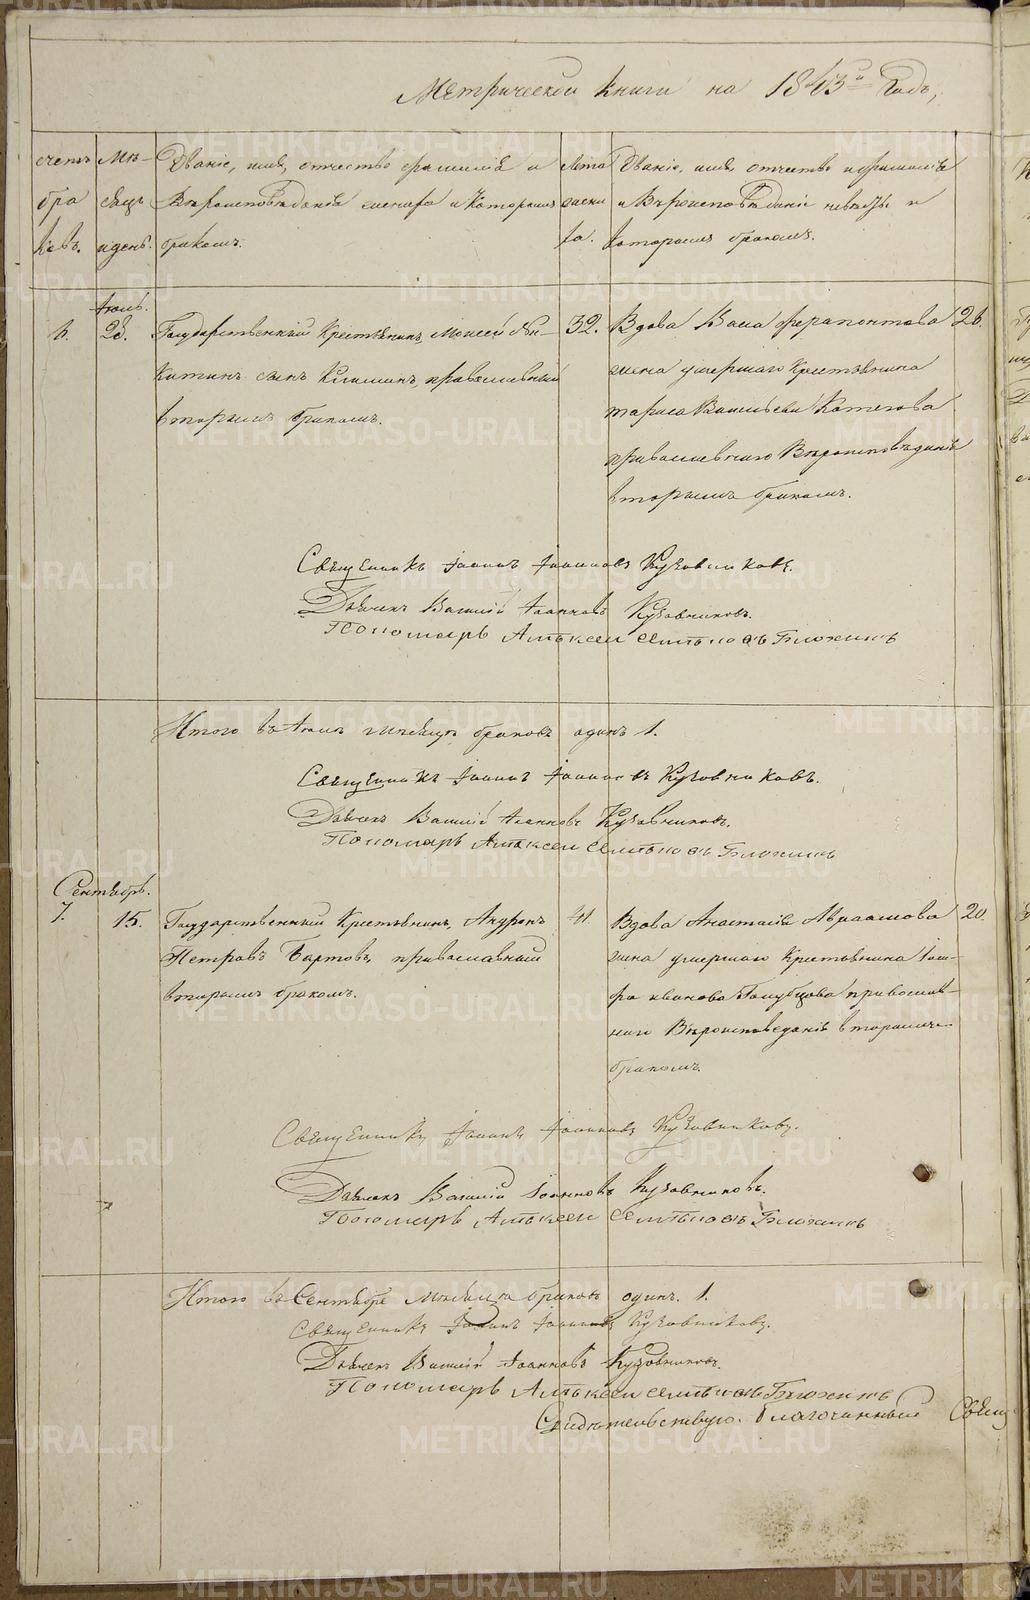 Метрической книги на 1843й Годъ,
счетъ бра ковъ.
Мѣ- сяцъ и день.
Званіе, имя, отчество фамилія и
Вѣроисповѣданіе жениха и Которымъ
бракомъ.
Лета жени ха.
Званіе, имя, отчество и фамилія
и Вѣроисповѣданіе невѣсты и
которымъ бракомъ.
Іюль.
6. 28.
Государственный Крестьянинъ Моисей Ни-
китинъ сынъ Климинъ, православный
вторымъ бракомъ.
32.
Вдова Васса Ферапонтова
жена умершаго Крестьянина
Тараса Васильева Котегова
православнаго Вѣроисповѣданія
вторымъ бракомъ.
26.
Священникъ Іоаннъ Іоанновъ Кузовниковъ.
Дьячекъ Василій Іоанновъ Кузовниковъ.
Пономарь Алѣксей Семѣновъ Блохинъ
Итого въ Іюлѣ мѣсяцѣ браковъ одинъ 1.
Священникъ Іоаннъ Іоанновъ Кузовниковъ.
Дьячекъ Василій Іоанновъ Кузовниковъ.
Пономарь Алѣксей Семѣновъ Блохинъ
Сентябрь.
7. 15.
Государственный Крестьянинъ, Андрей
Петровъ Бартовъ, православный
вторымъ бракомъ.
41.
Вдова Анастасія Авраамова
жена умершаго Крестьянина
Иванова Голубцова православ-
наго Вѣроисповеданія вторымъ
бракомъ.
20.
Священникъ Іоаннъ Іоанновъ Кузовниковъ.
Дьячекъ Василій Іоанновъ Кузовниковъ.
Пономарь Алѣксей Семѣновъ Блохинъ
Итого въ Сентябре мѣсяцѣ браковъ одинъ. 1.
Священникъ Іоаннъ Іоанновъ Кузовниковъ.
Дьячекъ Василій Іоанновъ Кузовниковъ.
Пономарь Алѣксей Семѣновъ Блохинъ
Свидѣтельствую. Благочинный Свящ
METRIKI.GASO-URAL.RU